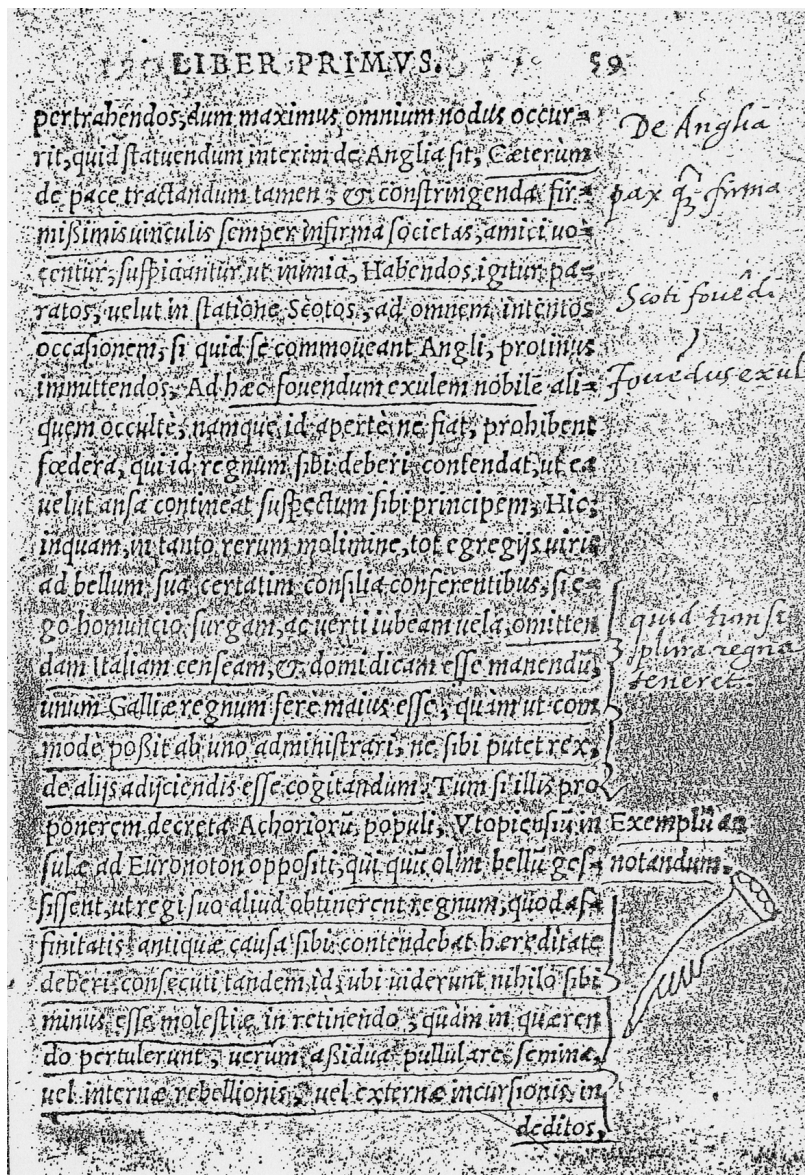 LIBER PRIMVS. 59
pertrahendos, dum maximus omnium nodus occur-
rit, quid statuendum interim de Anglia sit, Cæterùm
de pace tractandum tamen, & constringenda fir-
mißimis uinculis semper infirma societas, amici uo-
centur, suspiciantur ut inimici, Habendos igitur pa-
ratos, uelut in statione Scotos, ad omnem intentos
occasionem, si quid se commoueant Angli, protinus
immittendos, Ad hæc fouendum exulem nobilē ali-
quem occultè, namque id apertè ne fiat, prohibent
fœdera, qui id regnum sibi deberi contendat, ut ea
uelut ansa contineat suspectum sibi principem, Hic,
inquam, in tanto rerum molimine, tot egregijs uiris
ad bellum sua certatim consilia conferentibus, si e-
go homuncio surgam, ac uerti iubeam uela, omitten
dam Italiam censeam, & domi dicam esse manendū,
unum Galliæ regnum ferè maius esse, quàm ut com
mode poßit ab uno administrari, ne sibi putet rex,
de alijs adijciendis esse cogitandum. Tum si illis pro
ponerem decreta Achoriorū, populi, Vtopiensiū in
sulæ ad Euronoton oppositi, qui quū olim bellū ges-
sissent, ut regi suo aliud obtinerent regnum, quod af-
finitatis antiquæ causa sibi contendebat hæreditate
deberi, consecuti tandem id, ubi uiderunt nihilo sibi
minus esse molestiæ in retinendo, quàm in quæren
do pertulerunt, uerum aßidua pullulare semina,
uel internæ rebellionis, uel externæ incursionis in
deditos,
De Anglia
pax firma
Scoti fouēdi
Fouēdus exul
quid tum si
plura regna
teneret.
Exemplū an
notandum.